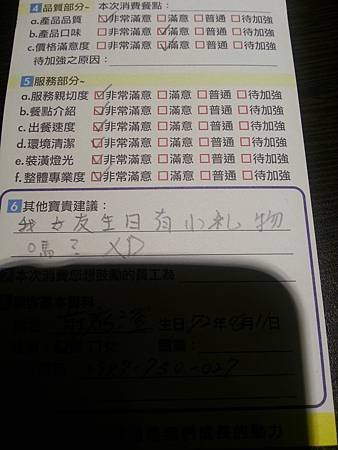 4 品質部分~ 本次消費餐點：
a.產品品質 ☑非常滿意 □滿意 □普通 □待加強
b.產品口味 □非常滿意 ☑滿意 □普通 □待加強
c.價格滿意度 □非常滿意 ☑滿意 □普通 □待加強
待加強之原因：
5 服務部分~
a.服務親切度 ☑非常滿意 □滿意 □普通 □待加強
b.餐點介紹 ☑非常滿意 □滿意 □普通 □待加強
c.出餐速度 ☑非常滿意 □滿意 □普通 □待加強
d.環境清潔 ☑非常滿意 □滿意 □普通 □待加強
e.裝潢燈光 ☑非常滿意 □滿意 □普通 □待加強
f.整體專業度 ☑非常滿意 □滿意 □普通 □待加強
6 其他寶貴建議：
我女友生日有小礼物
嗎？ XD
本次消費您想鼓勵的員工為
基本資料
生日:72年8月11日
成長的動力